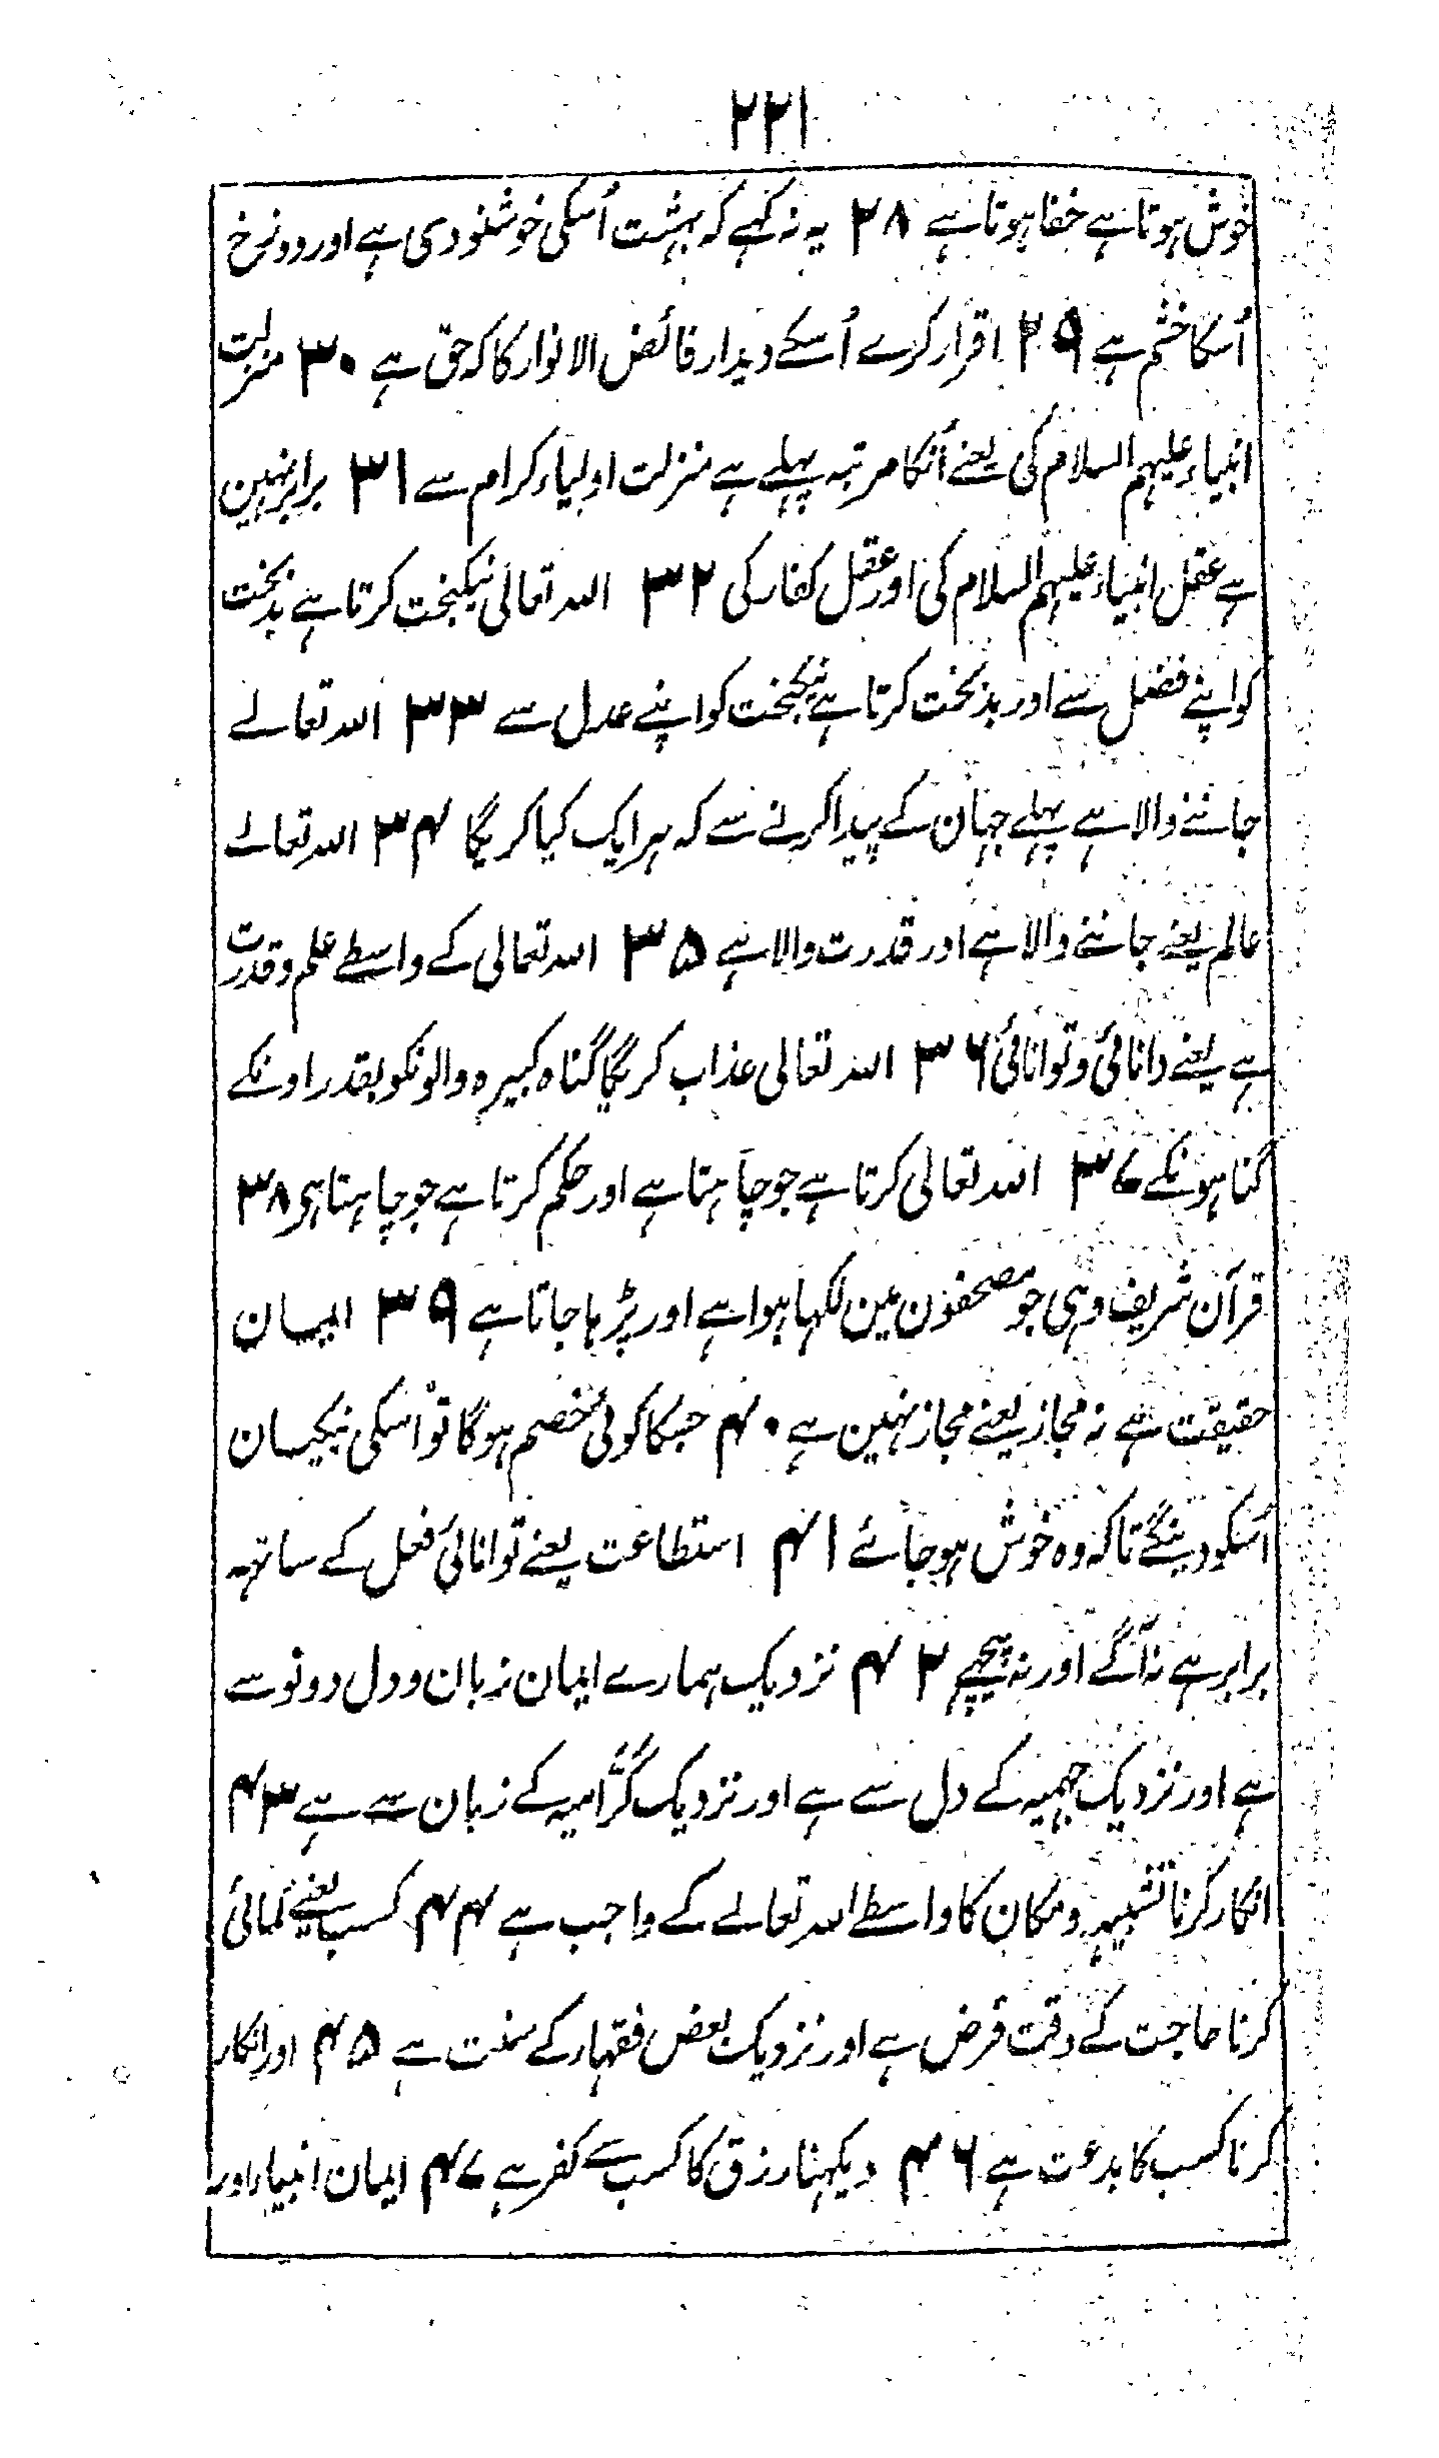 ۲۲۱
خوش ہوتا ہے خفا ہوتا ہے ۲۸ یہ نہ کہے کہ بہشت اُسکی خوشنودی ہے اور دوزخ
اُسکا خشم ہے ۲۹ اقرار کرے اُسکے دیدار فائض الانوار کا کہ حق ہے ۳۰ منزلت
انبیاء علیہم السلام کی یعنے اُنکا مرتبہ پہلے ہے منزلت اولیاء کرام سے ۳۱ برابر نہین
ہے عقل انبیاء علیہم السلام کی اور عقل کفار کی ۳۲ اللہ تعالی نیکبخت کرتا ہے بدبخت
کو اپنے فضل سے اور بدبخت کرتا ہے نیکبخت کو اپنے عدل سے ۳۳ اللہ تعالے
جاننے والا ہے پہلے جہان کے پیدا کرنے سے کہ ہر ایک کیا کریگا ۳۴ اللہ تعالے
عالم یعنے جاننے والا ہے اور قدرت والا ہے ۳۵ اللہ تعالی کے واسطے علم و قدرت
ہے یعنے دانائی و توانائی ۳۶ اللہ تعالی عذاب کریگا گناہ کبیرہ والونکو بقدر اونکے
گناہونکے ۳۷ اللہ تعالی کرتا ہے جو چاہتا ہے اور حکم کرتا ہے جو چاہتا ہی ۳۸
قرآن شریف وہی جو مصحفون مین لکہا ہوا ہے اور پڑہا جاتا ہے ۳۹ ایمان
حقیقت ہے نہ مجاز یعنے مجاز نہین ہے ۴۰ جسکا کوئی خصم ہوگا تو اُسکی نیکیان
اُسکو دینگے تاکہ وہ خوش ہو جائے ۴۱ استطاعت یعنے توانائی فعل کے ساتہہ
برابر ہے نہ آگے اور نہ پیچہے ۴۲ نزدیک ہمارے ایمان زبان و دل دونو سے
ہے اور نزدیک جہمیہ کے دل سے ہے اور نزدیک کرّامیہ کے زبان سے ہے ۴۳
انکار کرنا تشبیہ و مکان کا واسطے اللہ تعالے کے واجب ہے ۴۴ کسب یعنے کمائی
کرنا حاجت کے وقت فرض ہے اور نزدیک بعض فقہاء کے سنت ہے ۴۵ اور انکار
کرنا کسب کا بدعت ہے ۴۶ دیکہنا رزق کا کسب سے کفر ہے ۴۷ ایمان انبیاء اور